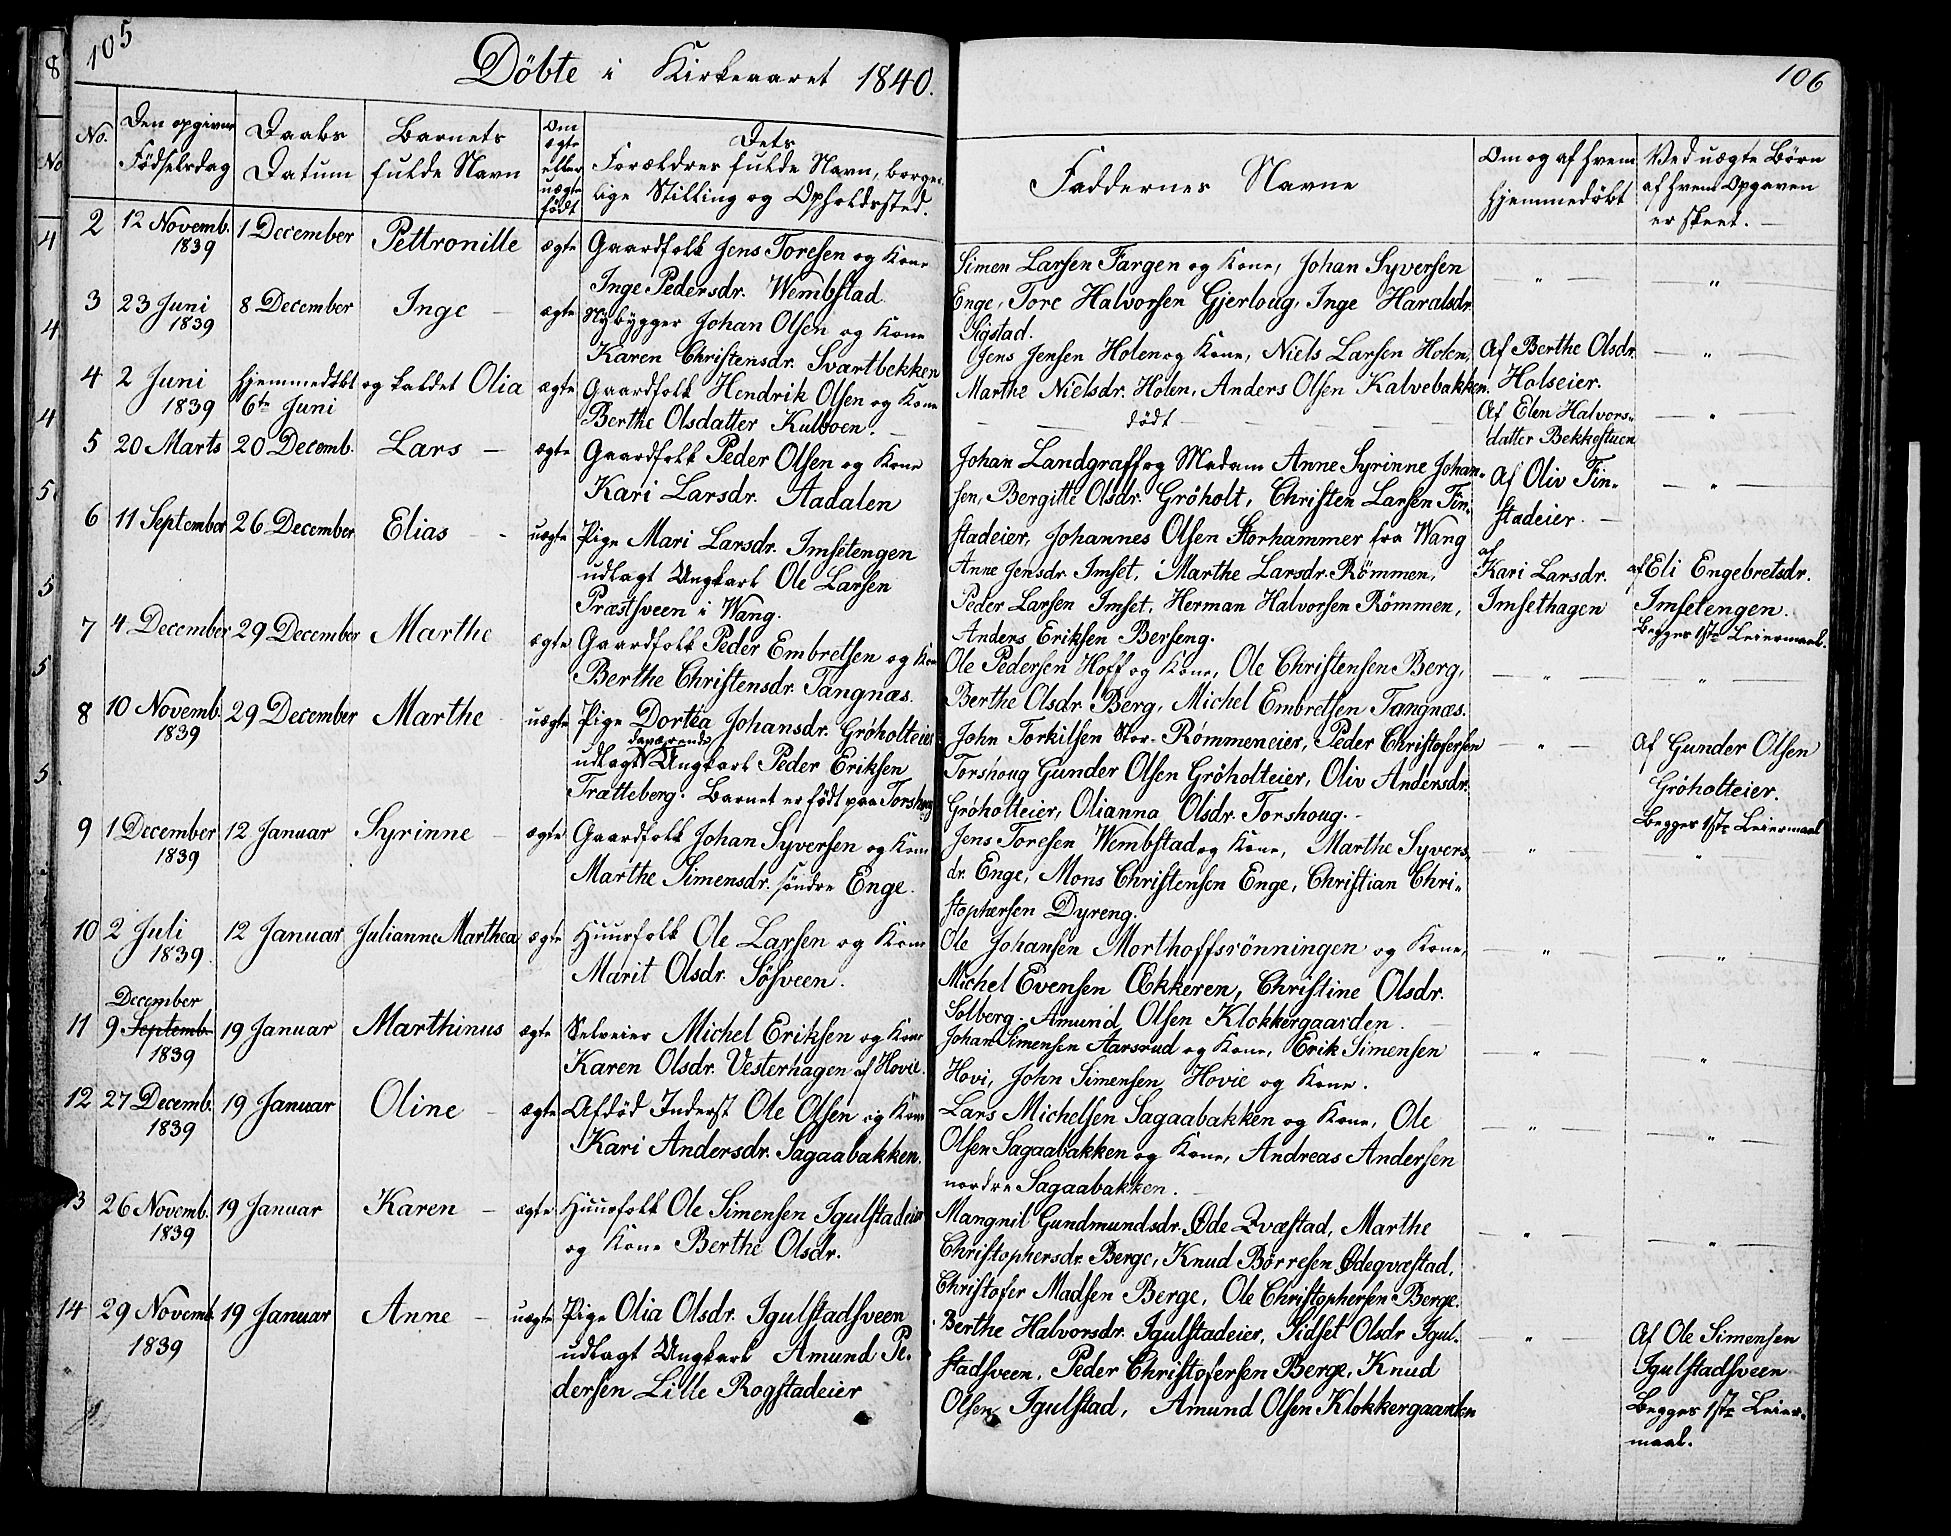 105
Döbte i Kirkeaaret 1840.
No.
Den opgivne Födselsdag
Daabs Datum
Barnets fulde Navn
Om ægte eller uægte födt
Dets Forældres fulde Navn, borgerlige Stilling og Opholdssted.
2 12 Novemb. 1839 1 December Pettronille ægte Gaardfolk Jens Toresen og Kone
Inge Pedersdr. Wembstad
3 23 Juni 1839 8 December Inge – ægte Nybygger Johan Olsen og Kone
Karen Christensdr. Svartbekken
4 2 Juni 1839 hjemmedöbt og kaldet Olia 6te Juni ægte Gaardfolk Hendrik Olsen og Kone
Berthe Olsdatter Kulboen. –
5 20 Marts 20 Decemb. Lars – ægte Gaardfolk Peder Olsen og Kone
Kari Larsdr. Aadalen
6 11 September 26 December Elias – uægte Pige Mari Larsdr. Imsetengen
udlagt Ungkarl Ole Larsen
Præstsveen i Wang.
7 4 December 29 December Marthe ægte Gaardfolk Peder Embretsen og Kone
Berthe Christensdr. Tangnæs.
8 10 Novemb. 1839 29 December Marthe uægte Pige Dortéa Johansdr. Gröholteier
udlagt Ungkarl Peder Eriksen
Trætteberg. Barnet er födt paa Torshoug
9 1 December 1839 12 Januar Syrinne – ægte Gaardfolk Johan Syversen og Kone
Marthe Simensdr. söndre Enge.
10 2 Juli 1839. 12 Januar Julianne Marthea ægte Huusfolk Ole Larsen og Kone
Marit Olsdr. Sösveen.
December
11 9 Septemb. 1839 19 Januar Marthinus ægte Selveier Michel Eriksen og Kone
Karen Olsdr. Vesterhagen af Hovie.
12 27 Decemb. 1839 19 Januar Oline – ægte Afdöd Inderst Ole Olsen og Kone
Kari Andersdr. Sagaabakken.
13 26 Novemb. 1839 19 Januar Karen – ægte Huusfolk Ole Simensen Igulstadeier
og Kone Berthe Olsdr.
14 29 Novemb. 1839 19 Januar Anne – uægte Pige Olia Olsdr. Igulstadsveen
udlagt Ungkarl Amund Pe-
dersen Lille Rogstadeier
106
Faddernes Navne
Om og af hvem hjemmedöbt
Ved uægte Börn af hvem Opgaven er skeet. –
Simen Larsen Fargen og Kone, Johan Syversen
Enge, Tore Halvorsen Gjerloug, Inge Haralsdr.
Sigstad.
Jens Jensen Holen og Kone, Niels Larsen Holen, Af Berthe Olsdr.
Marthe Nielsdr. Holen, Anders Olsen Kalvebakken. Holseier.
födt Af Elen Halvors-
datter Bekkestuen
Johan Landgraff og Madam Anne Syrinne Johan-
sen, Bergitte Olsdr. Gröholt, Christen Larsen Fin-
stadeier, Johannes Olsen Storhammer fra Wang
Af Oliv Fin-
stadeier. –
Anne Jensdr. Imset, Marthe Larsdr. Römmen,
Peder Larsen Imset, Herman Halvorsen Römmen,
Anders Eriksen Berseng.
af
Kari Larsdr.
Imsethagen
af Eli Engebretsdr.
Imsetengen.
Begges 1ste Leiermaal.
Ole Pedersen Hoff og Kone, Ole Christensen Berg,
Berthe Olsdr. Berg, Michel Embretsen Tangnæs.
John Torkilsen Stor-Römmeneier, Peder Christofersen
Torshoug Gunder Olsen Gröholteier, Oliv Andersdr.
Gröholteier, Olianna Olsdr. Torshoug. –
Af Gunder Olsen
Gröholteier.
Begges 1ste Leiermaal
Jens Toresen Wembstad og Kone, Marthe Syvers-
dr. Enge, Mons Christensen Enge, Christian Chri-
stophersen Dyreng.
Ole Johansen Morthoffsrönningen og Kone,
Michel Evensen Œkkeren, Christine Olsdr.
Solberg. Amund Olsen Klokkergaarden.
Johan Simensen Aarsrud og Kone, Erik Simensen
Hovi, John Simensen Hovie og Kone.
Lars Michelsen Sagaabakken og Kone, Ole
Olsen Sagaabakken og Kone, Andreas Andersen
nordre Sagaabakken.
Mangnil Gundmundsdr. Öde Qvæstad, Marthe
Christophersdr. Berge, Knud Börresen Ödeqvæstad,
Christofer Madsen Berge, Ole Christophersen Berge.
Berthe Halvorsdr. Igulstadeier, Sidset Olsdr Igul-
stadsveen, Peder Christofersen Berge, Knud
Olsen Igulstad, Amund Olsen Klokkergaarden
Af Ole Simensen
Igulstadsveen
Begges 1ste Leier-
maal.
8
No
4
4
4
5
5
5
5